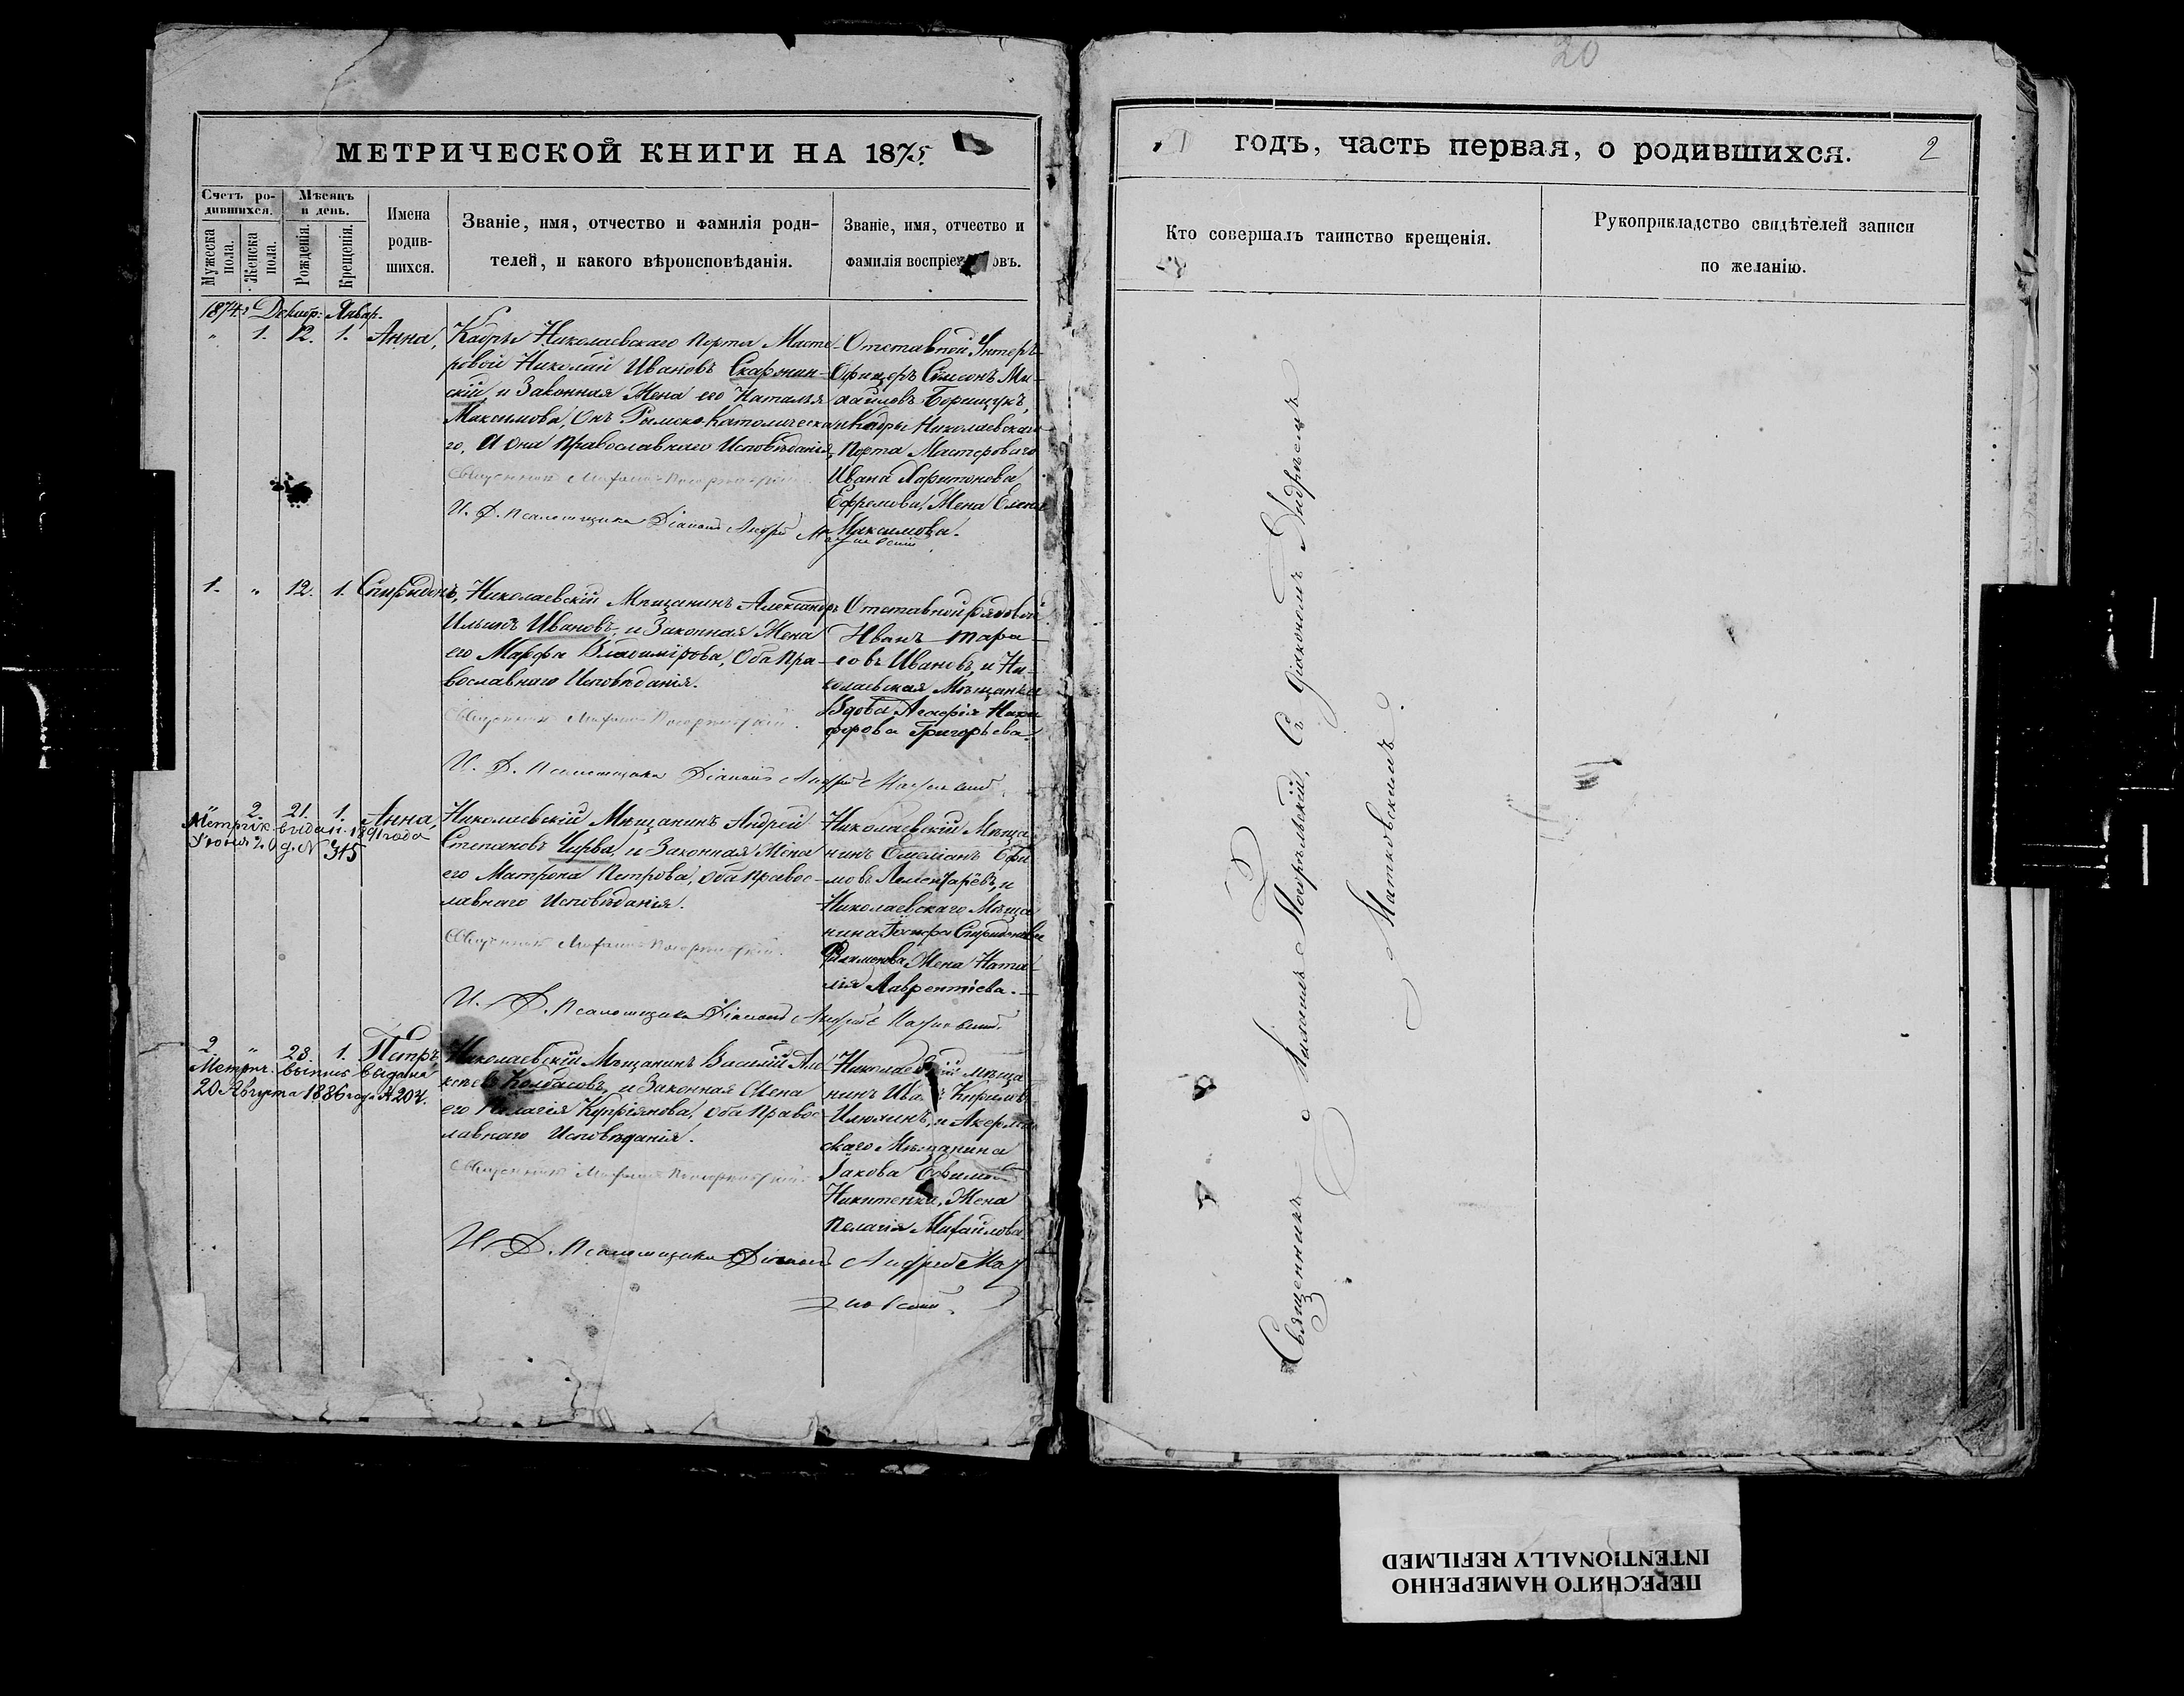 МЕТРИЧЕСКОЙ КНИГИ НА 1875
Счетъ ро-
дившихся.
Мѣсяцъ
и день.
Мужеска
пола.
Женска
пола.
Рожденія.
Крещенія.
Имена
родив-
шихся.
Званіе, имя, отчество и фамилія роди-
телей, и какого вѣроисповѣданія.
Званіе, имя, отчество и
фамилія воспріе овъ.
1874 г. Декабр: Январ.
" 1. 12. 1. Анна,
Кадръ Николаевскаго Порта Масте-
ровой Николай Ивановъ Скаржин-
скій, и Законная Жена его Наталья
Максимова, Онъ Римско-Католическа-
го, а Она Православнаго Исповѣданія,
Священникъ
И. Д. Псаломщика Діаконъ Андрей
Отставной Унтеръ-
Офицеръ Симеонъ Ми-
хайловъ Борищукъ,
и Кадры Николаевскаго
Порта Мастероваго
Ивана Харитонова
Ефремова, Жена Елена
Максимова.
1. " 12. 1. Спиридонъ,
Николаевскій Мѣщанинъ Александръ
Ильинъ Ивановъ, и Законная Жена
его Марфа Владимірова, Оба Пра-
вославнаго Исповѣданія.
Священникъ
И. Д. Псаломщика Діаконъ Андрей
Отставной рядовой
Иванъ Тара-
совъ Ивановъ, и Ни-
колаевская Мѣщанка
Вдова Ники-
форова Григорьева.
2. 21. 1. Анна,
Метрик. выдан. 1891 года
№ 315
Николаевскій Мѣщанинъ Андрей
Степановъ Чирва, и Законная Жена
его Матрона Петрова, Оба Правос-
лавнаго Исповѣданія.
Священникъ
И. Д. Псаломщика Діаконъ Андрей
Николаевскій Мѣща-
нинъ Емеліанъ Ефи-
мовъ и
Николаевскаго Мѣща-
нина Іосифа Спиридонова
Филимонова Жена Ната-
лія Лаврентіева.
2 " 23. 1. Петръ,
Метрич. выпись выдана
20 Августа 1886 года № 204.
Николаевскій Мѣщанинъ Василій Але-
ксѣевъ Колбасовъ, и Законная Жена
его Пелагія Купріянова, Оба Правос-
лавнаго Исповѣданія.
Священникъ
И. Д. Псаломщика Діаконъ Андрей
Николаевскій мѣща-
нинъ Иванъ Кириловъ
Илюхинъ, и Акерман-
скаго Мѣщанина
Іакова Ефимова
Никитенка, Жена
Пелагія Михайлова
20
годъ, часть первая, о родившихся.
2
Кто совершалъ таинство крещенія.
Рукоприкладство свидѣтелей записи
по желанію.
Священникъ Погорѣльскій, Съ Діакономъ Андреемъ
Матковскимъ.
ПЕРЕСНЯТО НАМЕРЕННО
INTENTIONALLY REFILMED